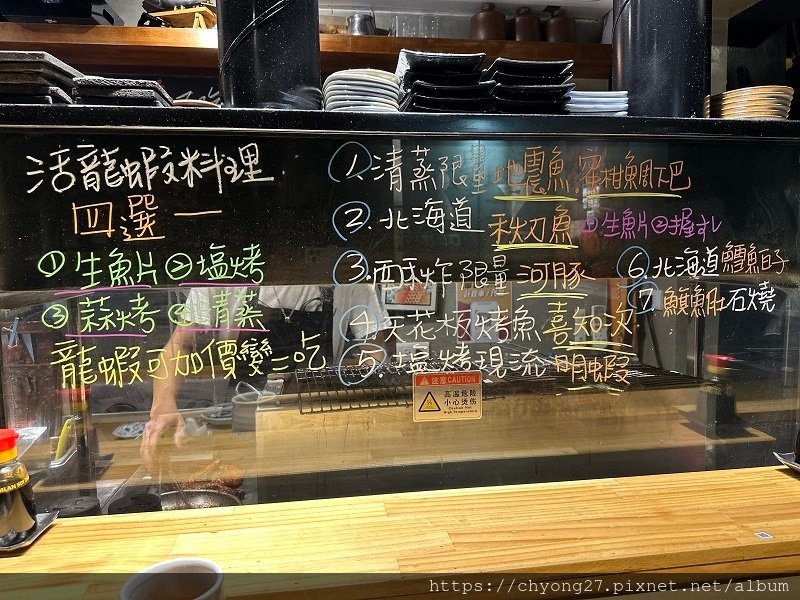 活龍蝦料理
四選一
① 生魚片 ② 塩烤
③ 蒜烤 ④ 清蒸
龍蝦可加價變二吃
1. 清蒸限量地震魚. 蜜柑鯛下巴
2. 北海道 秋刀魚 ①生魚片②握り
3. 酥炸限量 河豚
4. 天花板烤魚 喜知次
5. 塩烤現流 明蝦
6. 北海道鱈魚白子
7. 鮟鱇魚肚石燒
注意CAUTION
高温危险
小心烫伤
Caution Hot
High Temperature
https://chyong27.pixnet.net/album